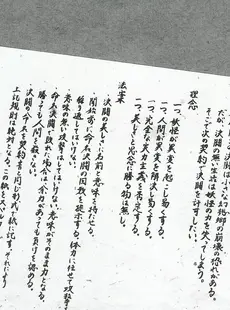 だが、決闘の無い生活は妖怪の力を失ってしまう。
そこで次の契約で決闘を許可したい。
理念
一つ、妖怪が異変を起こし易くする。
一つ、人間が異変を解決し易くする。
一つ、完全な実力主義を否定する。
一つ、美しさと思念に勝る物は無し。
法案
・決闘の美しさに名前と意味を持たせる。
・開始前に命名決闘の回数を提示する。体力に任せて攻撃を
繰り返してはいけない。
・意味の無い攻撃はしてはいけない。意味がそのまま力となる。
・命名決闘で敗れた場合は、余力があっても負けを認める。
勝っても人間を殺さない。
・決闘の命名を契約書と同じ形式で紙に記す。それにより
上記規則は絶対となる。この紙を